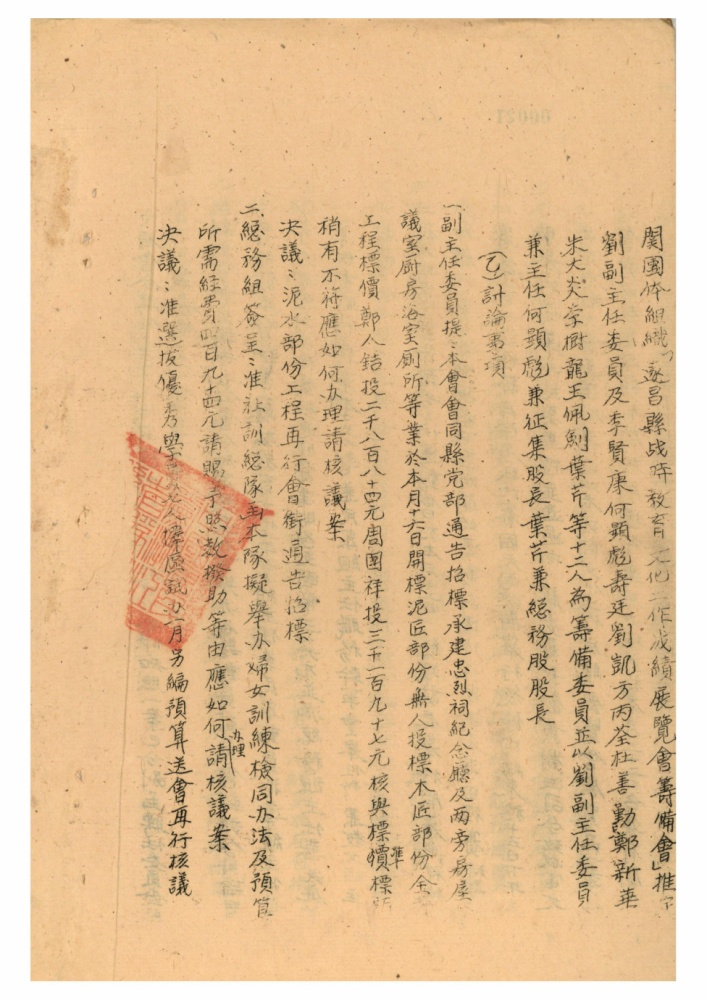 関團体組織「遂昌縣战時教育文化工作成績展覽會籌備會」推定
劉副主任委員及李賢康何顯彪壽廷劉凱方丙荃杜善勤鄭新華
朱大炎李樹龍王佩劍葉芹等十二人為籌備委員並以劉副主任委員
兼主任何顯彪兼征集股長葉芹兼總務股股長
(乙)討論事項
一、副主任委員提：本會會同縣党部通告招標承建忠烈祠紀念廳及两旁房屋
議室厨房浴室厠所等業於本月十六日開標泥匠部份無人投標木匠部份全
工程標價鄭人銛投二千八百八十四元周團祥投三千一百九十七元核與標準價標
稍有不符應如何办理請核議案
決議：泥水部份工程再行會銜通告招標
二、總務組簽呈：准 訓總隊 本隊擬舉办婦女訓練檢同办法及預算
所需經費四百九十四元請賜予照数撥助等由應如何办理請核議案
決議：准選拔優秀學 人擇區試办一月另編預算送會再行核議